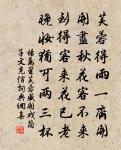 芙蓉得雨一齊開
開盡秋花客不來
到得客來花已老
晚妝猶可兩三杯
楊萬里芙蓉盛開戲簡
子文克信詞典調集